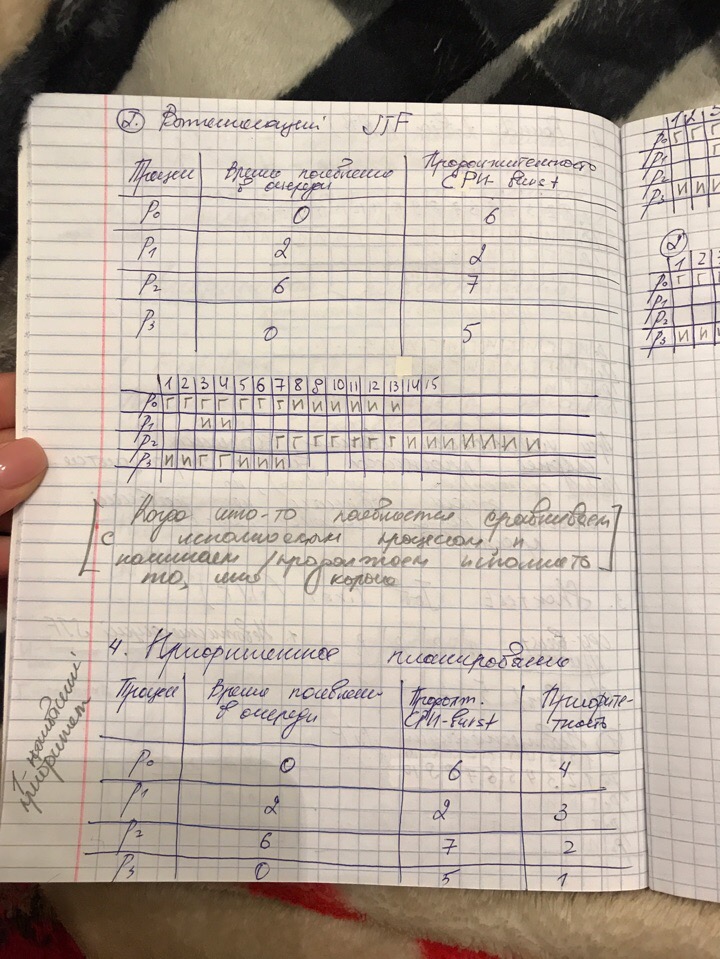 2. Вытесняющий SJF
Процесс Время появления в очереди Продолжительность CPU-burst
P0 0 6
P1 2 2
P2 6 7
P3 0 5
1 2 3 4 5 6 7 8 9 10 11 12 13 14 15
P0 Г Г Г Г Г Г Г И И И И И И
P1 И И
P2 Г Г Г Г Г Г Г И И И И И И И
P3 И И Г Г И И И
[Когда что-то появляется сравниваем
с исполняемым процессом и
начинаем/продолжаем исполнять
то, что короче]
4. Приоритетное планирование
1-наивысший
приоритет
Процесс Время появлен. в очереди Продолж. CPU-burst Приорите-тность
P0 0 6 4
P1 2 2 3
P2 6 7 2
P3 0 5 1
1 2 3
P0 Г Г Г
P1
P2
P3 И И И
2
1 2 3
P0 Г Г Г
P1
P2
P3 И И И